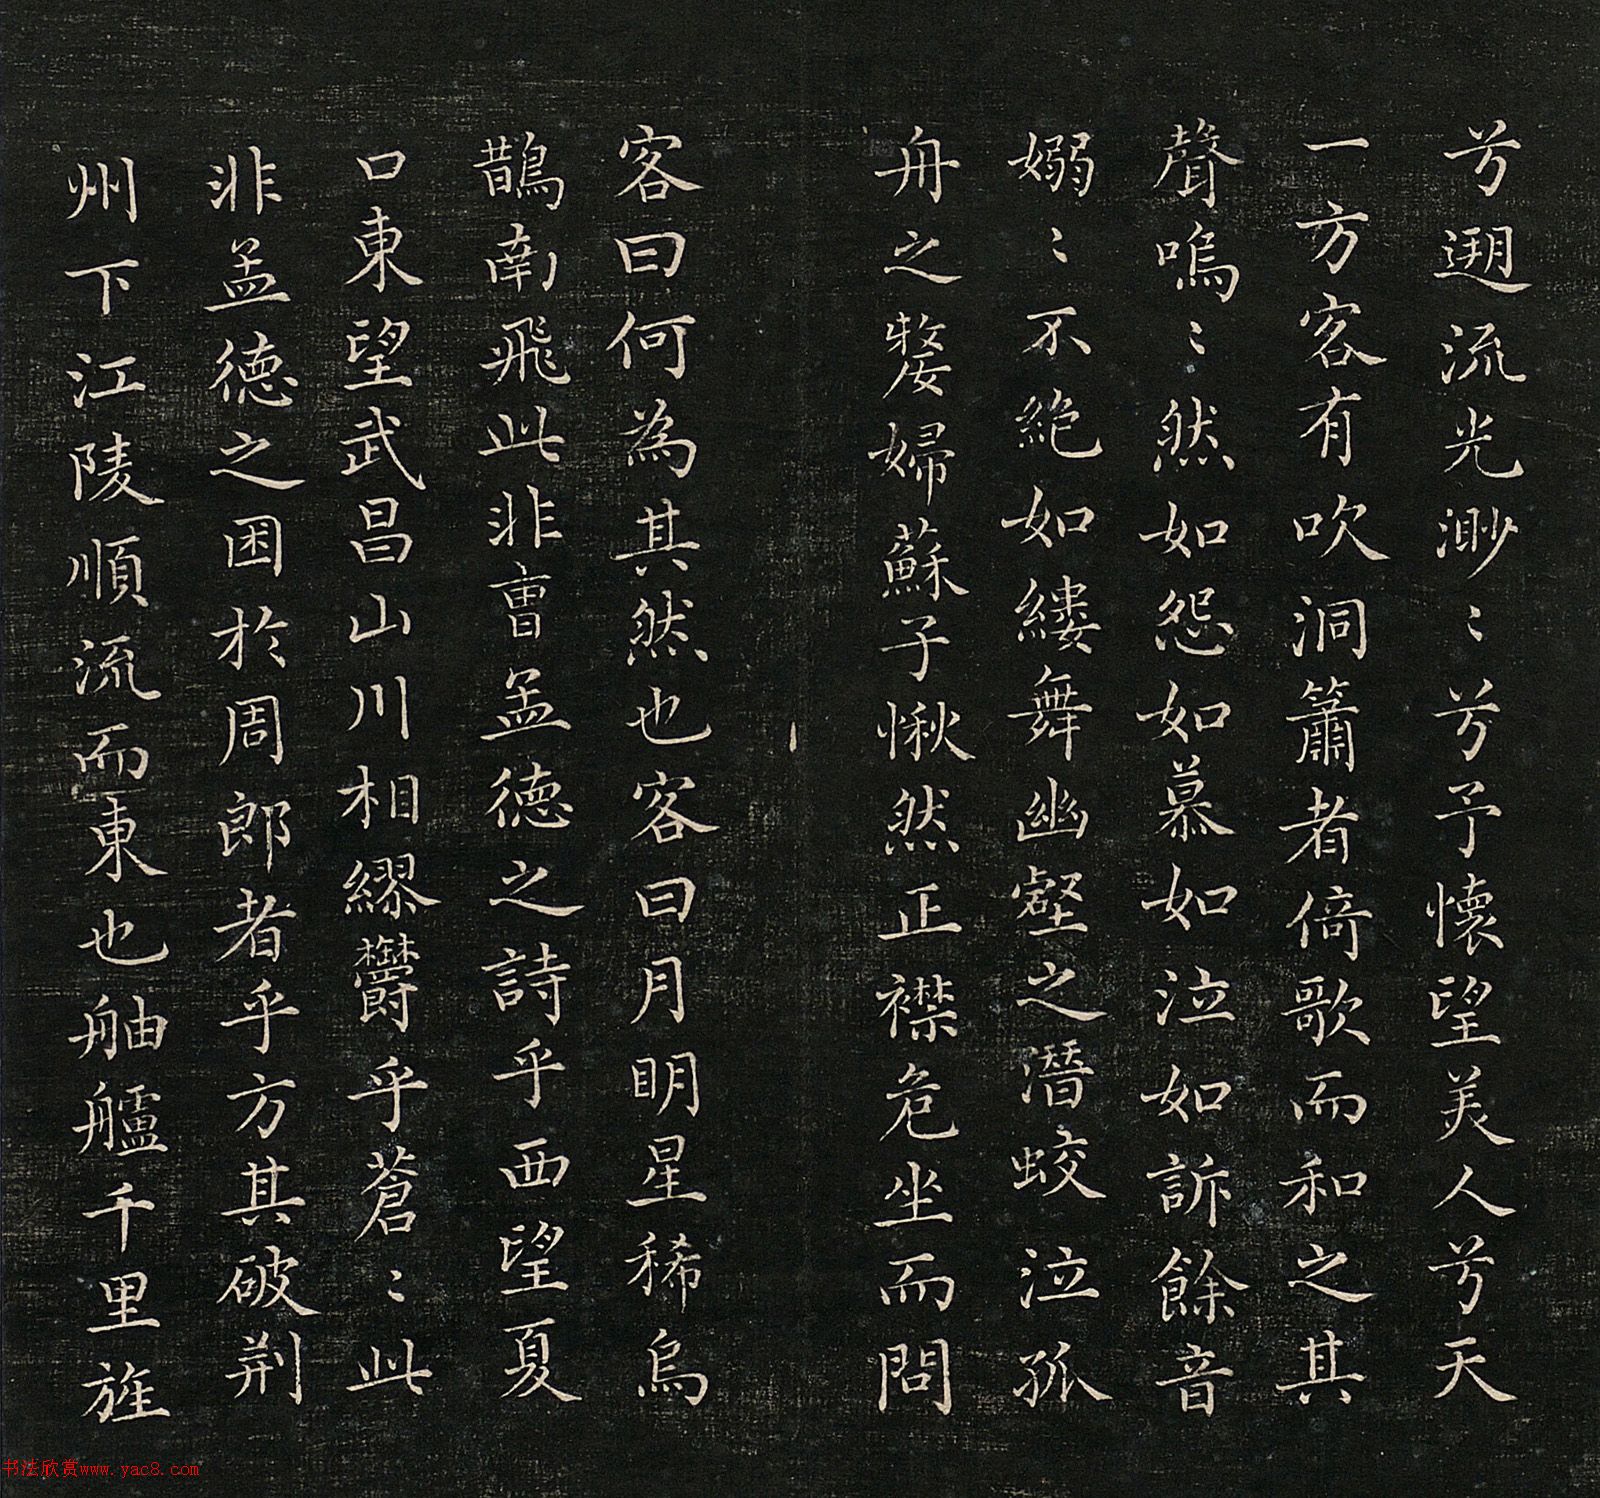 兮遡流光渺〻兮予懷望美人兮天
一方客有吹洞簫者倚歌而和之其
聲嗚〻然如怨如慕如泣如訴餘音
嫋〻不絶如縷舞幽壑之潛蛟泣孤
舟之嫠婦蘇子愀然正襟危坐而問
客曰何為其然也客曰月明星稀烏
鵲南飛此非曹孟德之詩乎西望夏
口東望武昌山川相繆欝乎蒼〻此
非孟德之困於周郎者乎方其破荆
州下江陵順流而東也舳艫千里旌
书法欣赏www.yac8.com